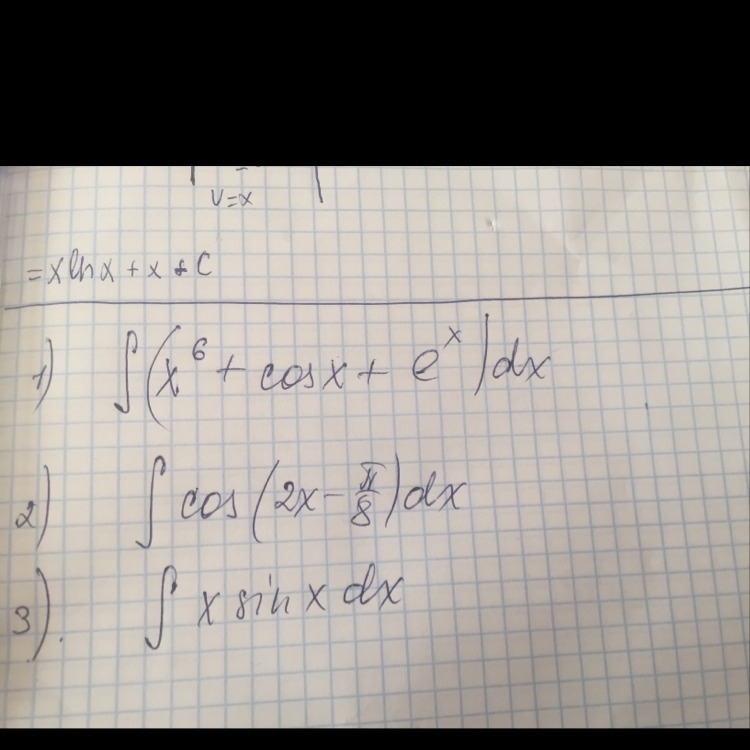 v=x
=x ln x + x + C
1) ∫(x⁶ + cos x + eˣ)dx
2) ∫ cos(2x - π/8)dx
3). ∫ x sin x dx